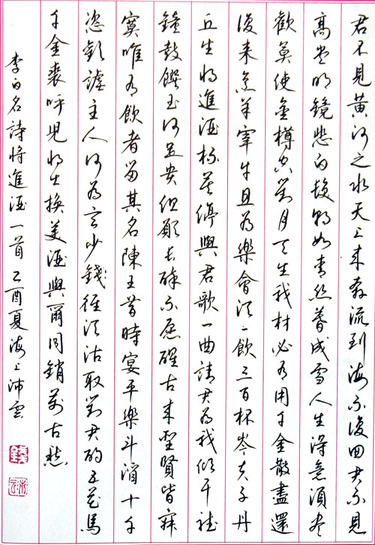 君不見黃河之水天上來奔流到海不復回君不見
高堂明鏡悲白髮朝如青絲暮成雪人生得意須盡
歡莫使金樽空對月天生我材必有用千金散盡還
復來烹羊宰牛且為樂會須一飲三百杯岑夫子丹
丘生將進酒杯莫停與君歌一曲請君為我傾耳聽
鐘鼓饌玉何足貴但願長醉不愿醒古來聖賢皆寂
寞唯有飲者留其名陳王昔時宴平樂斗酒十千
恣歡謔主人何為言少錢徑須沽取對君酌五花馬
千金裘呼兒將出換美酒與爾同銷萬古愁
李白名詩將進酒一首乙酉夏海上沛雲